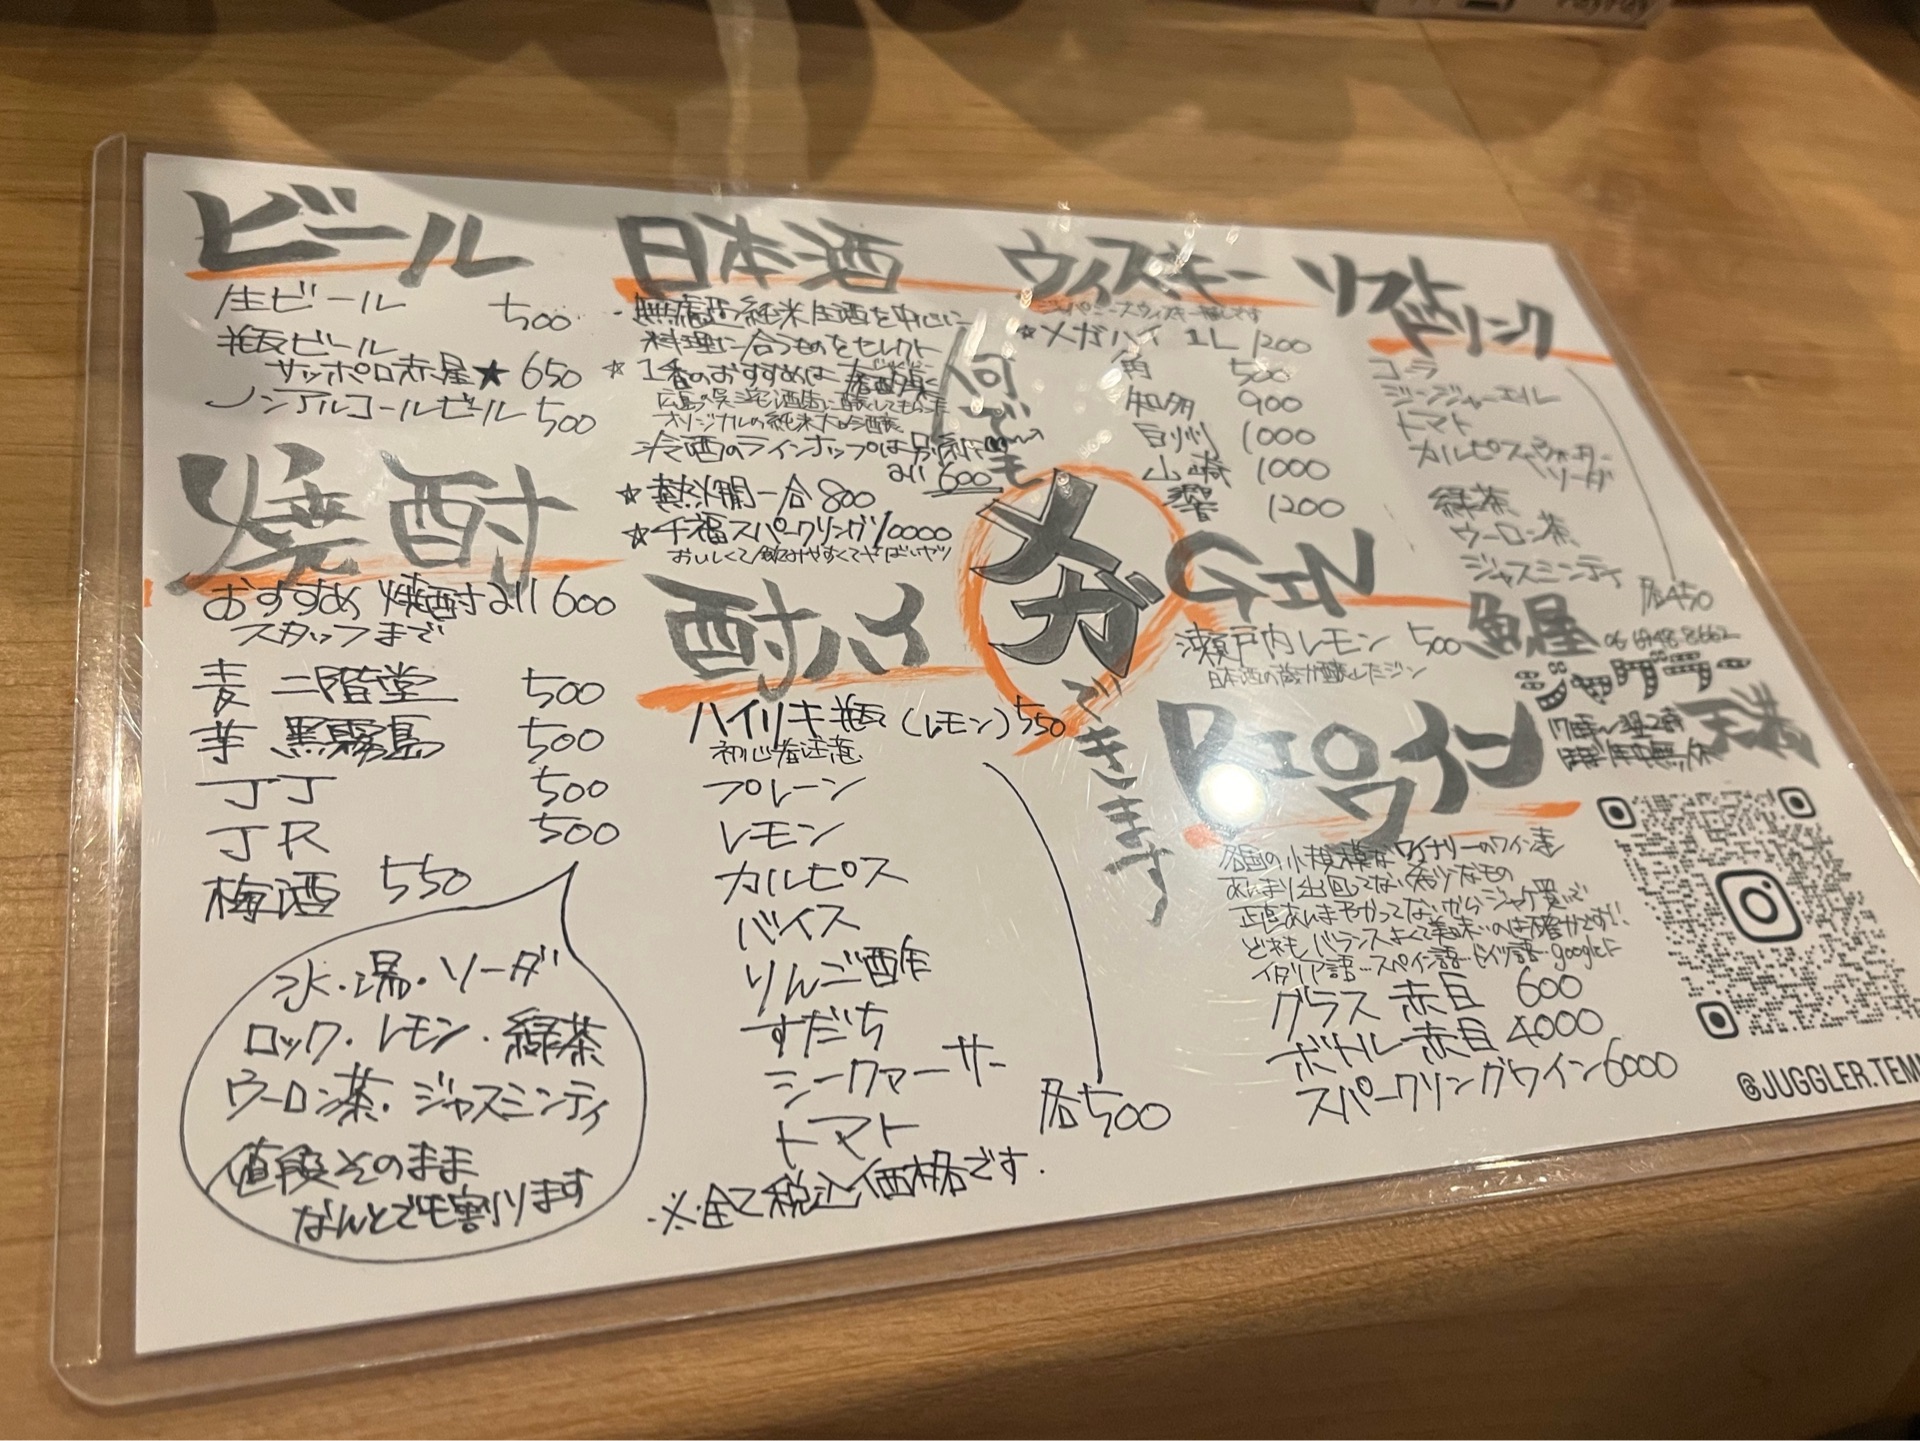 ビール
生ビール 500
瓶ビール
サッポロ赤星★ 650
ノンアルコールビール 500
焼酎
おすすめ 焼酎all 600
スタッフまで
麦 二階堂 500
芋 黒霧島 500
JJ 500
JR 500
梅酒 550
水・湯・ソーダ
ロック・レモン・緑茶
ウーロン茶・ジャスミンティ
値段そのまま
なんとでも割ります
日本酒
無濾過純米生酒を中心に
料理に合うものをセレクト
☆1番のおすすめは
オリジナルの純米大吟醸
冷酒のラインナップは別紙にて
all 600
☆熱燗一合 800
☆千福スパークリング 10000
おいしくて飲みやすくてやばいヤツ
酎ハイ
ハイリキ瓶(レモン)550
初心者注意
プレーン
レモン
カルピス
バイス
りんご酢
すだち
シークァーサー
トマト
各500
※全て税込価格です.
何でも
メガ
できます
ウィスキー
ジャパニーズウィスキー推しです
☆メガハイ 1L 1200
角 500
知多 900
白州 1000
山崎 1000
響 1200
GIN
瀬戸内レモン 500
日本酒の蔵が醸したジン
ワイン
各国の小規模なワイナリーのワイン達
あんまり出回ってない希少なもの
正直あんまわかってないからジャケ買いで
どれもバランスよくて美味いのは確かです!!
イタリア語…スペイン語…ドイツ語…google上
グラス 赤白 600
ボトル 赤白 4000
スパークリングワイン6000
ソフト
ドリンク
コーラ
ジンジャーエール
トマト
カルピスウォーター
ソーダ
緑茶
ウーロン茶
ジャスミンティ
各450
魚屋 06 6948 8662
ジャグラー
天満
@JUGGLER.TEM